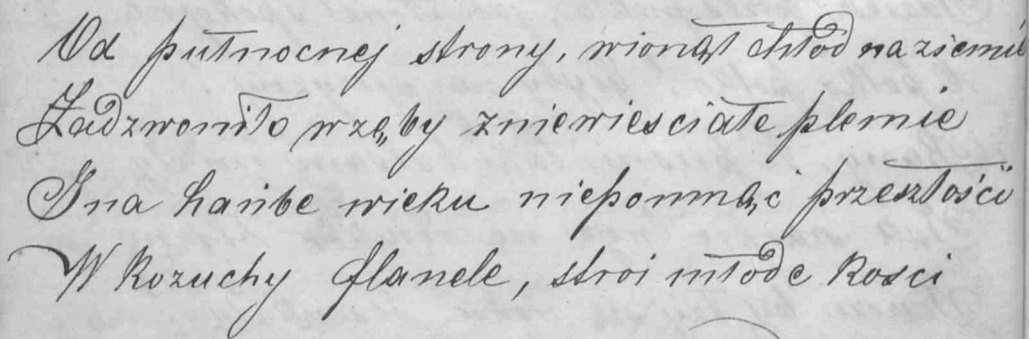 Od pułnocnej strony, wionął chłód na ziemie
Zadzwoniło w zęby zniewiesciałe plemie
I na hańbe wieku niepomnąć przeszłości
W kozuchy flanele, stroi młode kosci